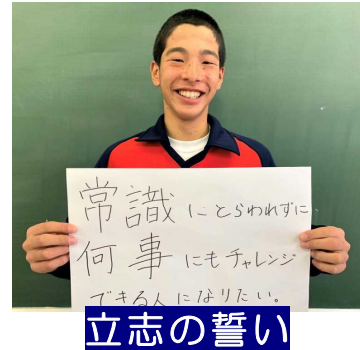 常識にとらわれずに、
何事にもチャレンジ
できる人になりたい。
立志の誓い